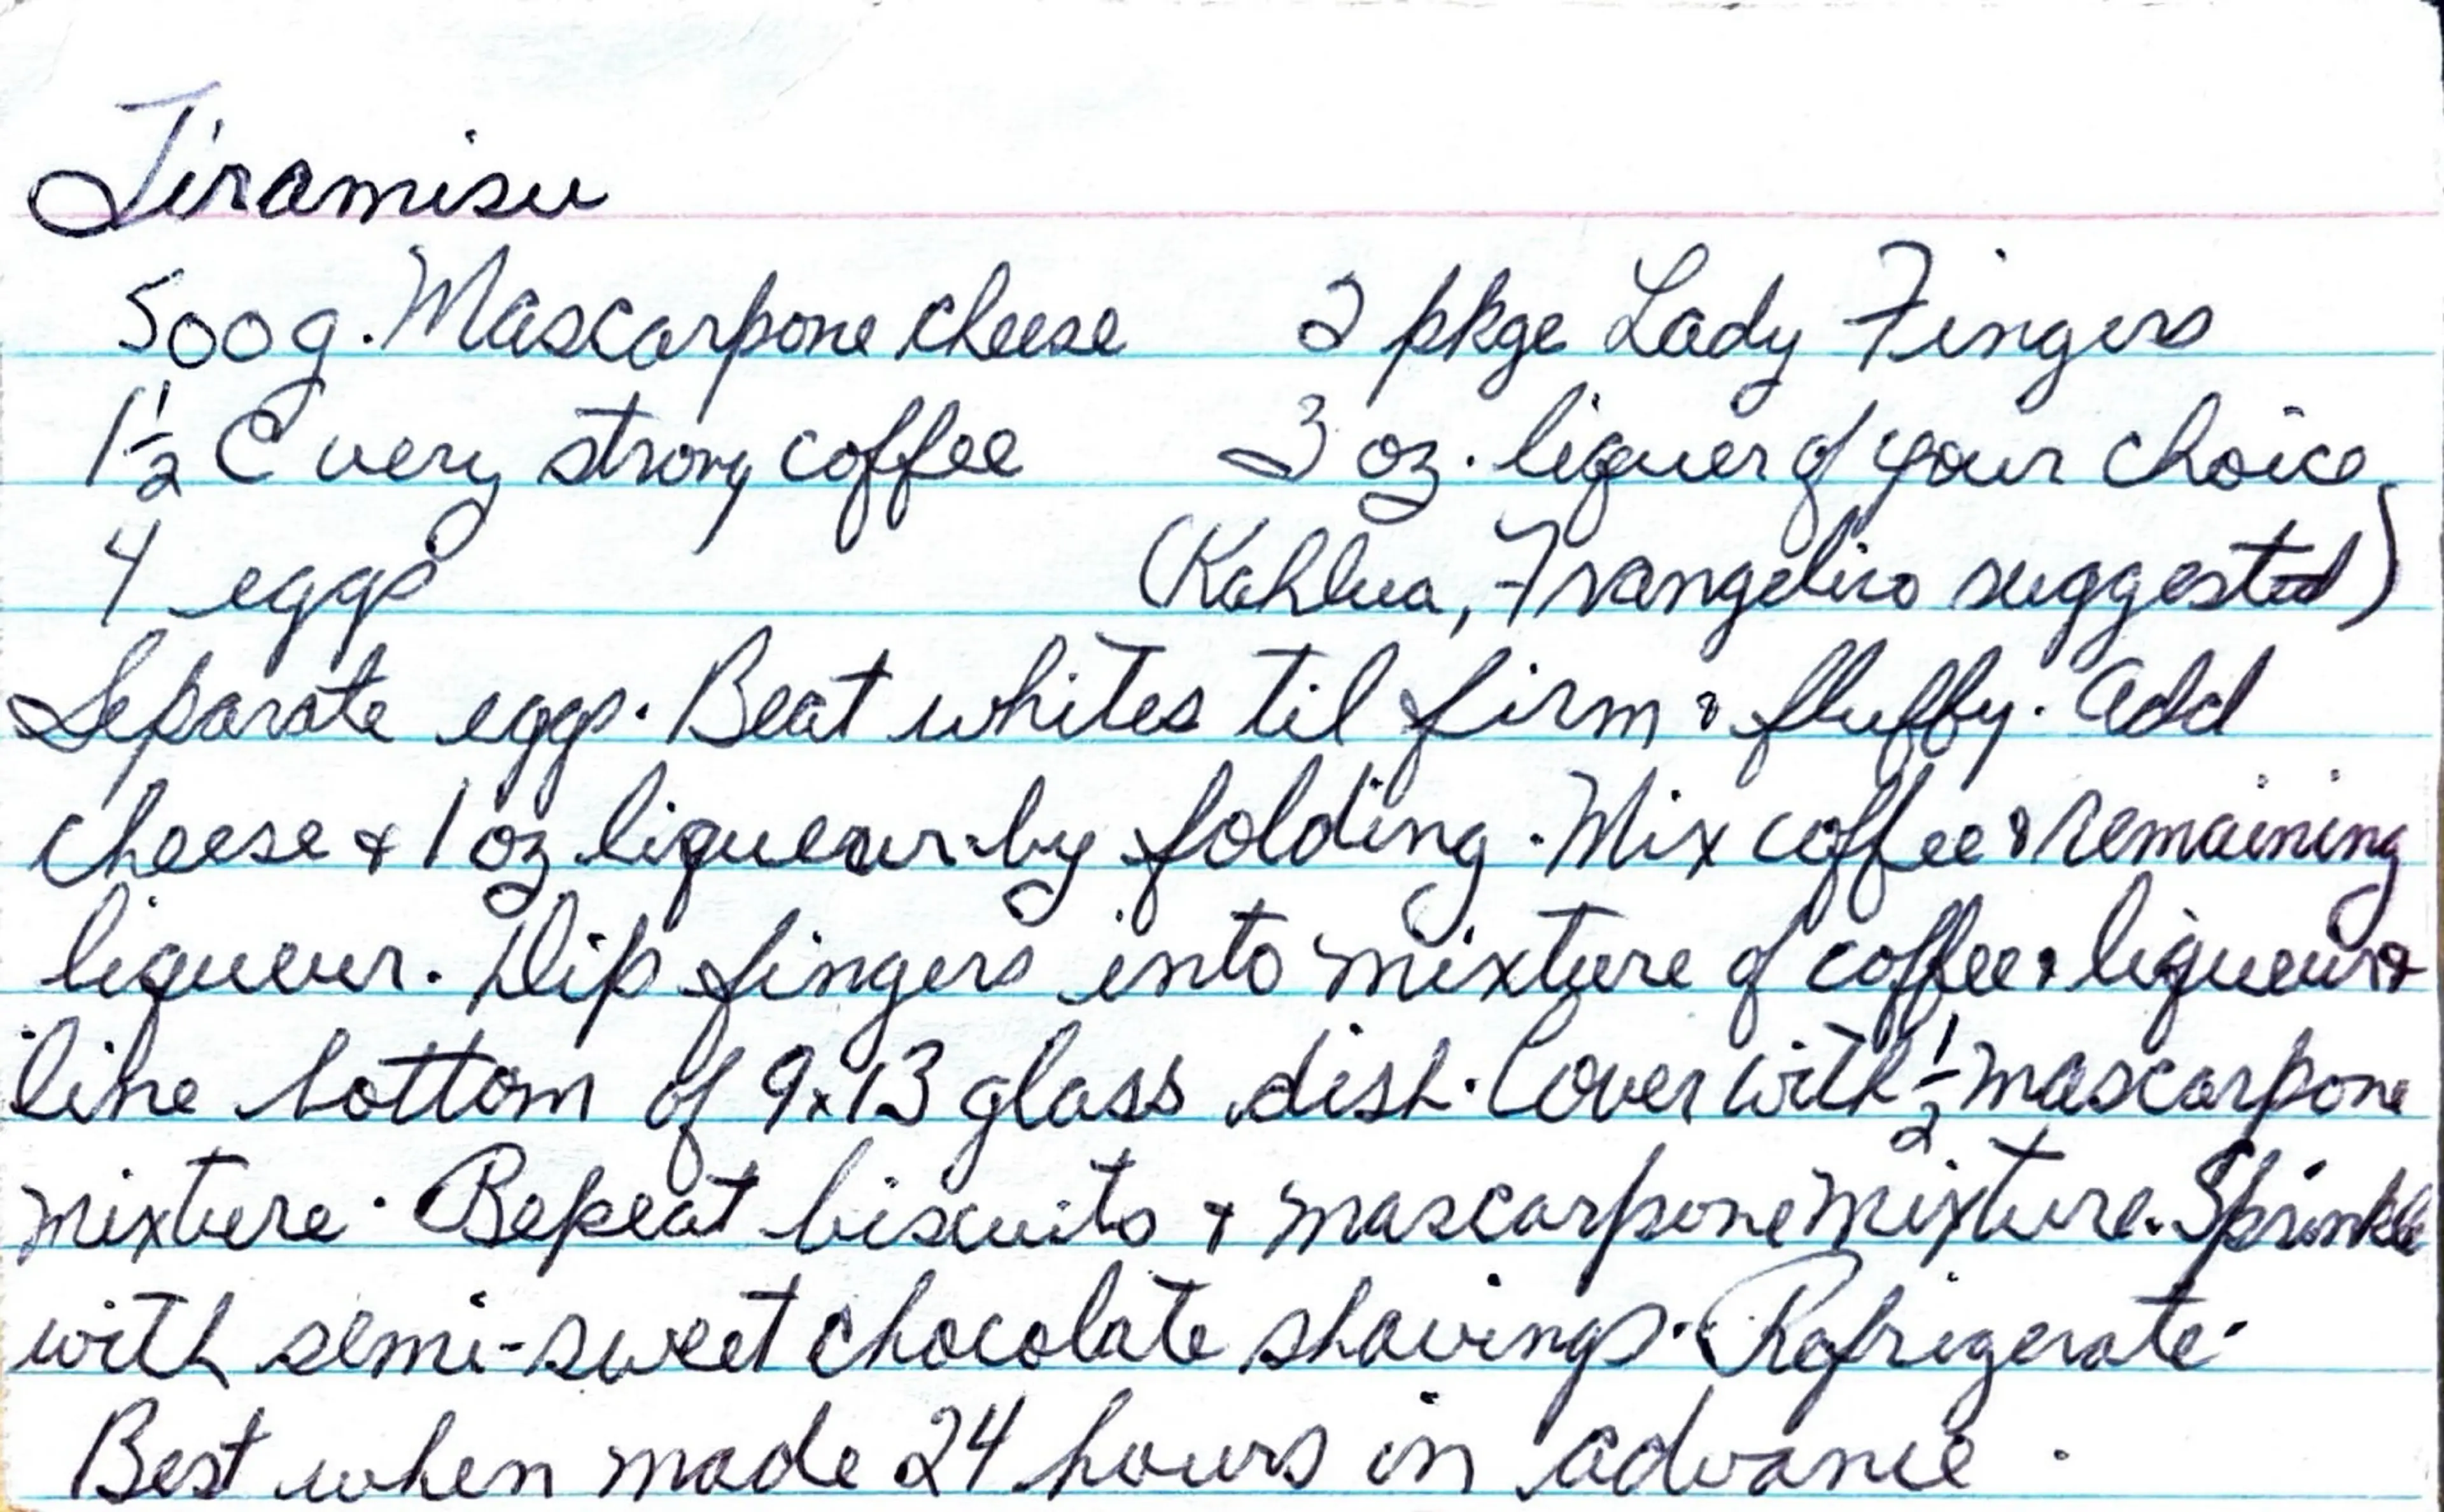 Tiramisu
500g. Mascarpone cheese 2 pkge Lady Fingers
1½ C very strong coffee 3 oz. liquer of your choice
4 eggs (Kahlua, Frangelico suggested)
Separate eggs. Beat whites til firm & fluffy. Add
cheese & 1 oz liqueur by folding. Mix coffee & remaining
liqueur. Dip fingers into mixture of coffee & liqueur &
line bottom of 9x13 glass dish. Cover with ½ mascarpone
mixture. Repeat biscuits & mascarpone mixture. Sprinkle
with semi-sweet chocolate shavings. Refrigerate.
Best when made 24 hours in advance.